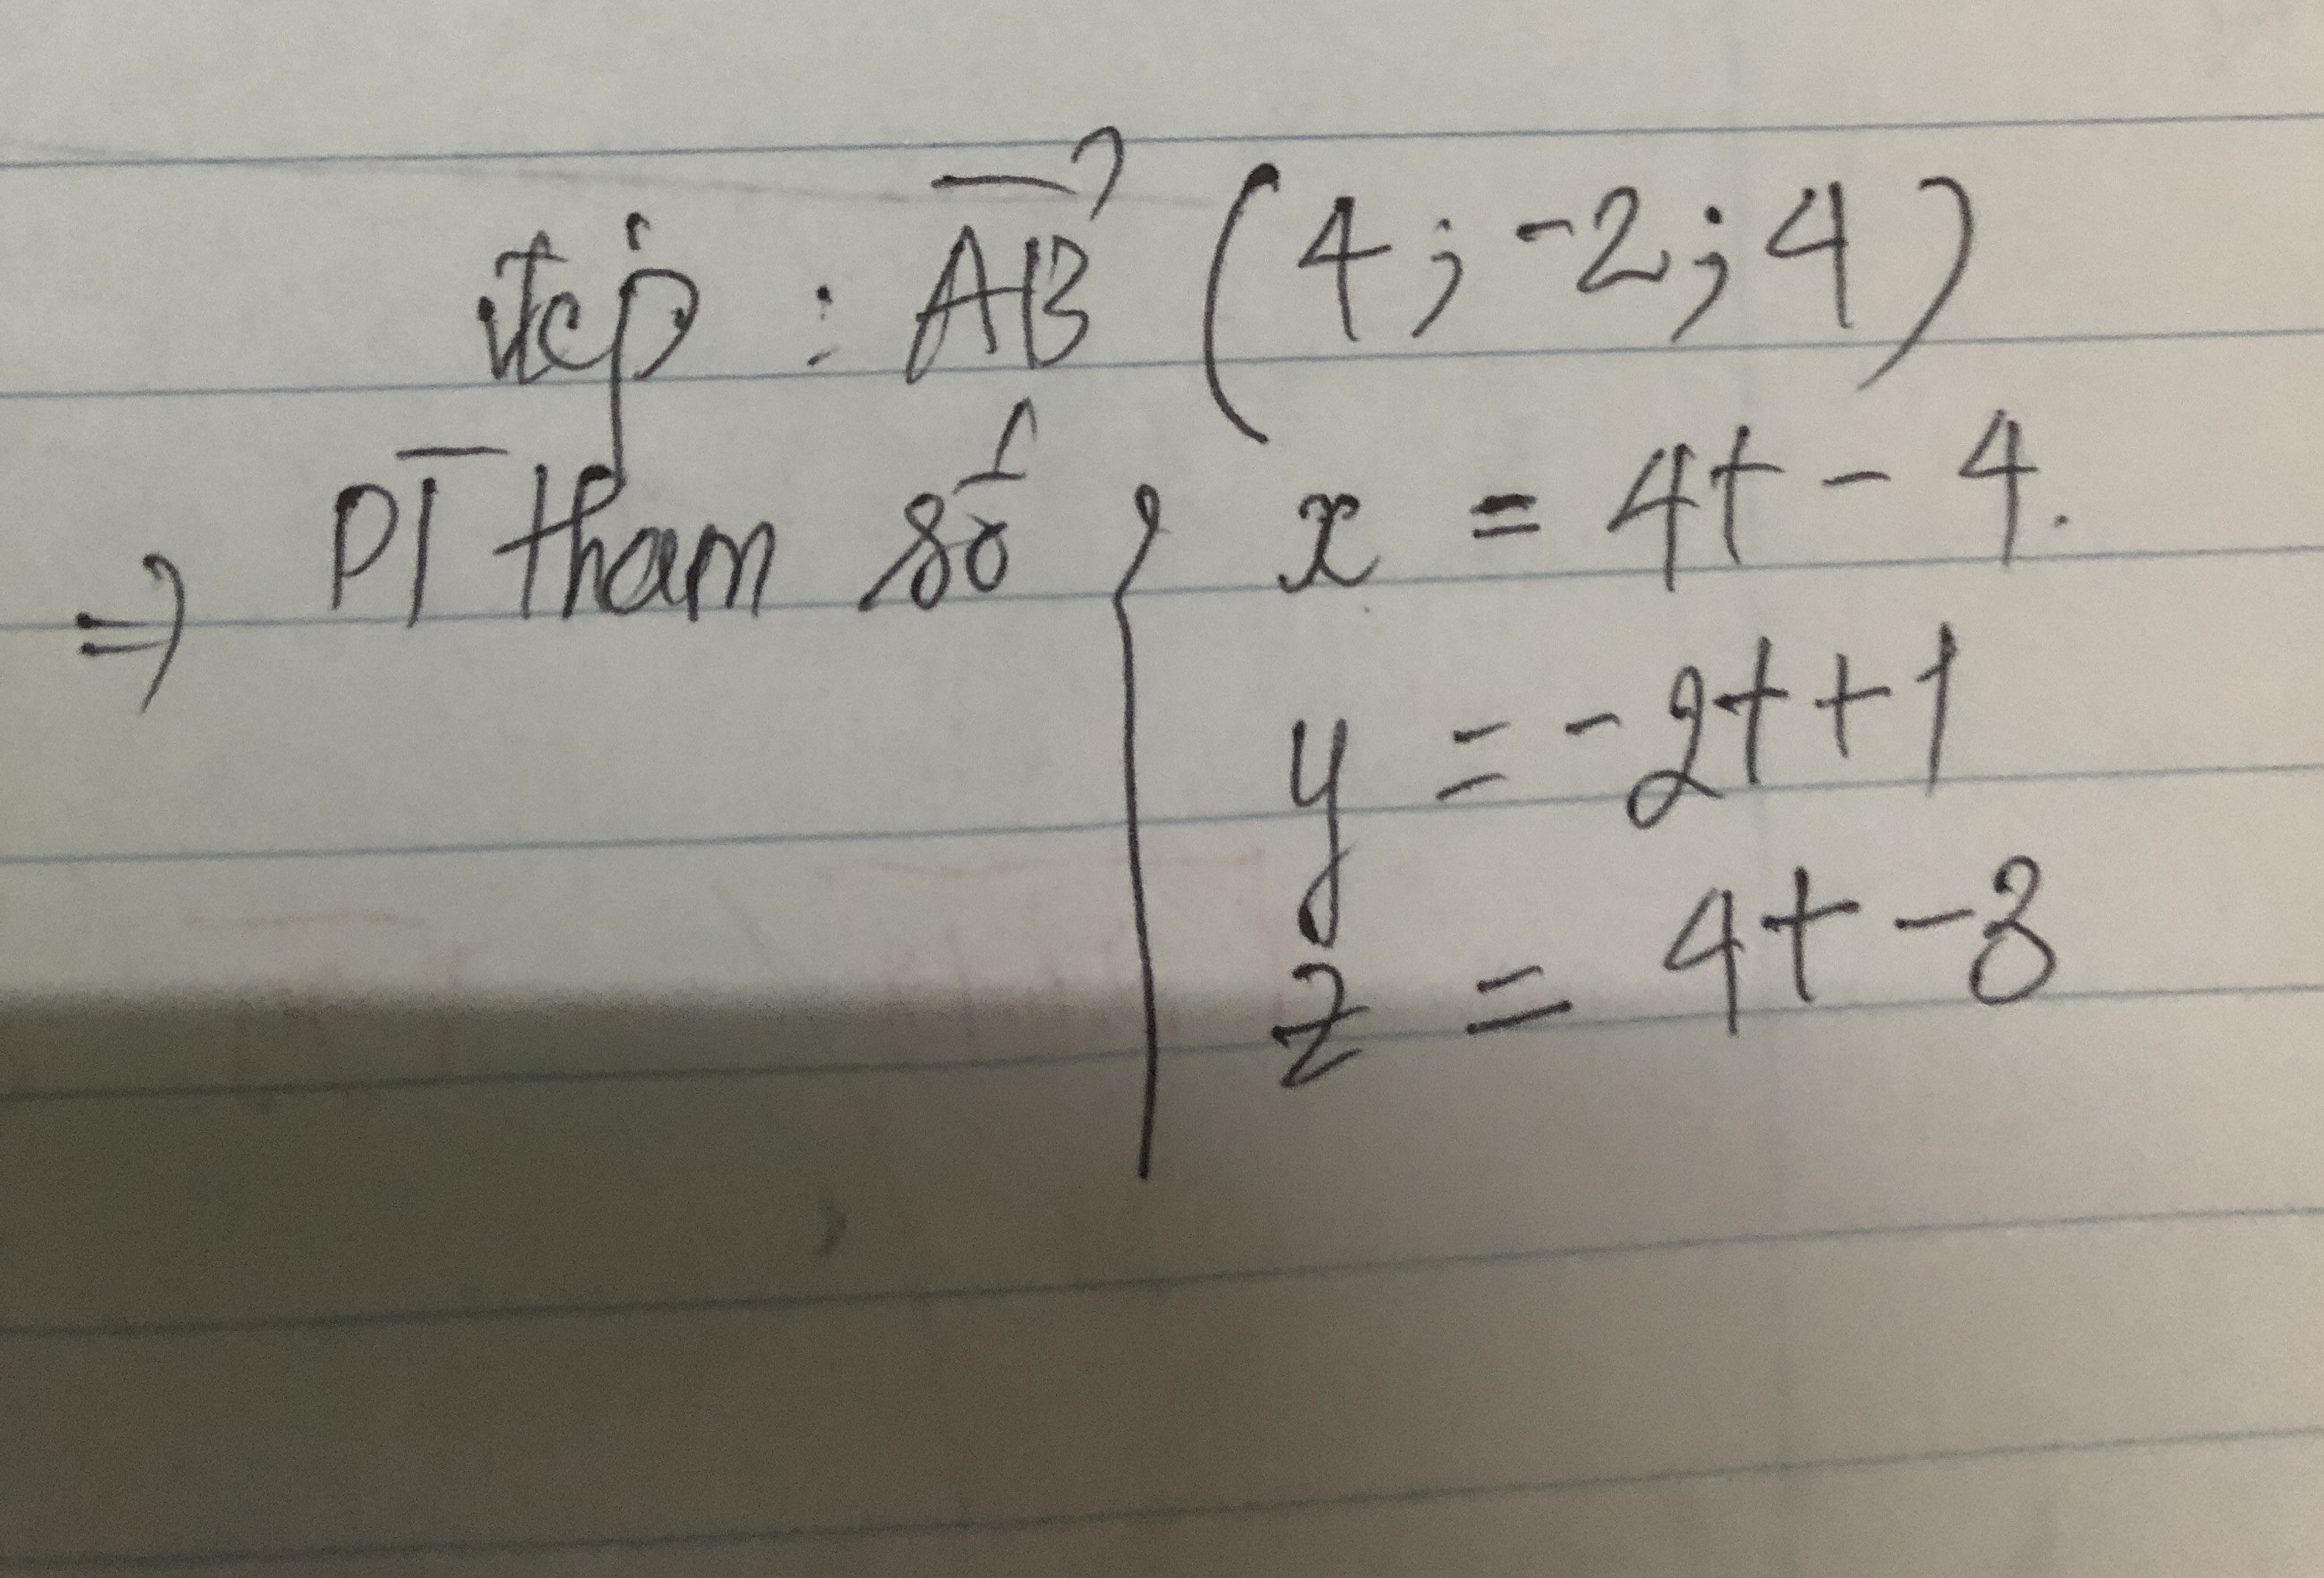 vtcp : AB (4; -2; 4)
=> PT tham số { x = 4t - 4.
y = -2t + 1
z = 4t - 3